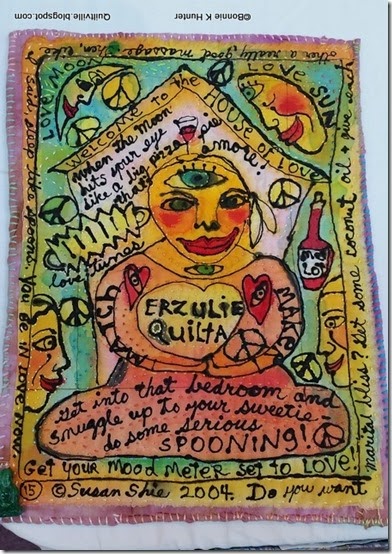 ©Bonnie K Hunter
Quiltville.blogspot.com
LOVE MOON
LOVE SUN
WELCOME TO the HOUSE OF LOVE
When the Moon
hits your eye
Like a big pizza pie
that's amore!
Love tunes
MATCH MAKER
ERZULIE
QuilTA
Get into that bedroom and
snuggle up to your sweetie -
do some serious
SPOONING!
Get your Mood Meter set to Love!
15 © Susan Shie 2004. Do you want
marital bliss? Get some coconut oil & give each
other a really good massage. Then, like
I said, sleep like spoons. You be in love now.